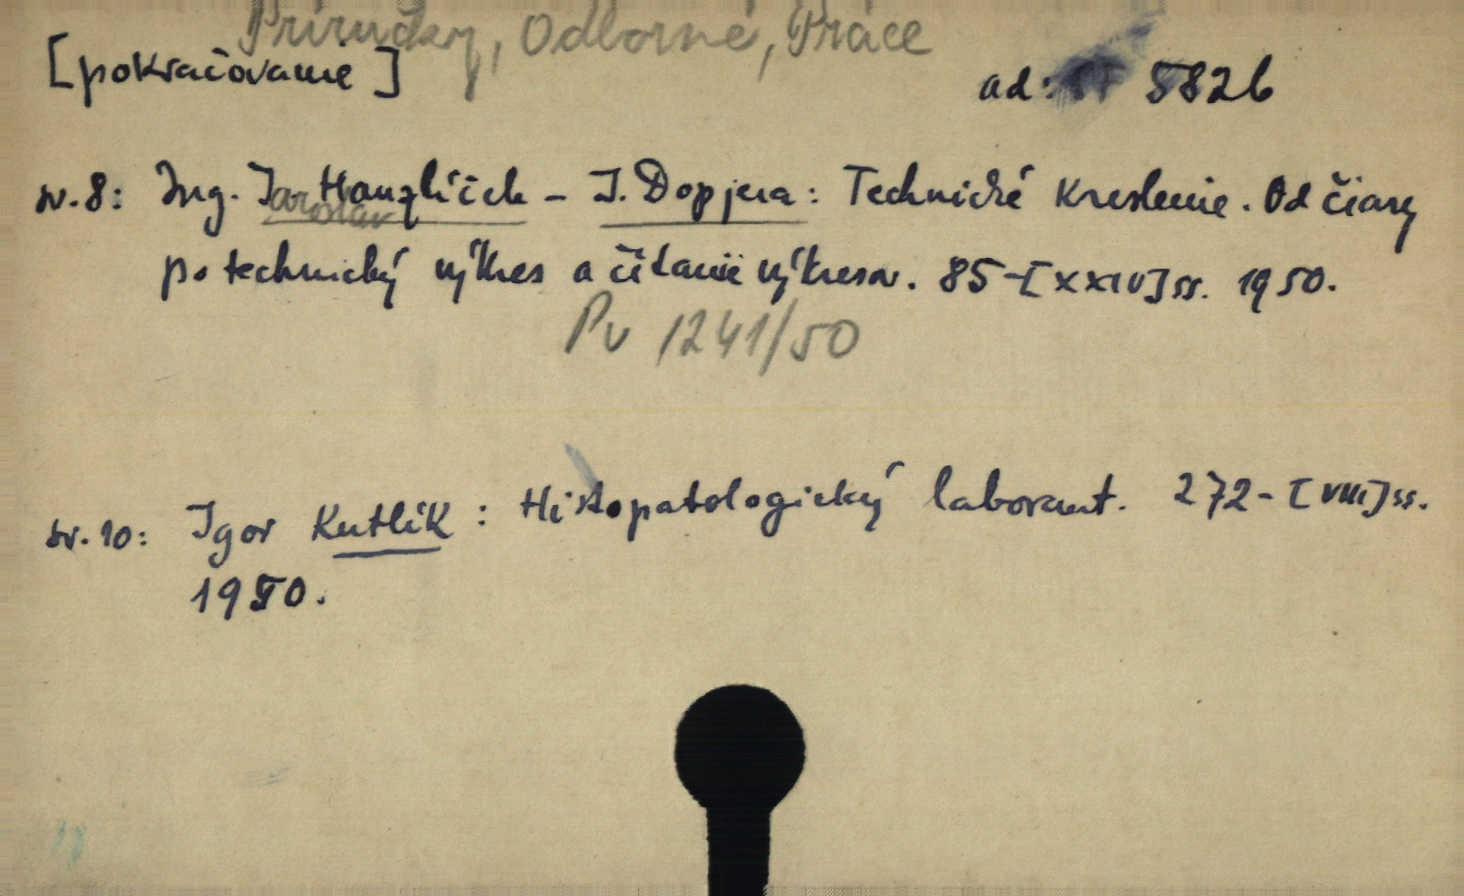 Príručky, Odborné, Práce
[pokračovanie]
ad: 5826
sv. 8: Ing. J. Hanzlíček - J. Dopjera: Technické kreslenie. Od čiary
Jaroslav
po technický výkres a čítanie výkresov. 85-[XXIV] ss. 1950.
Pv 1241/50
sv. 10: Igor Kutlík: Histopatologický laborant. 272-[VIII] ss.
1950.